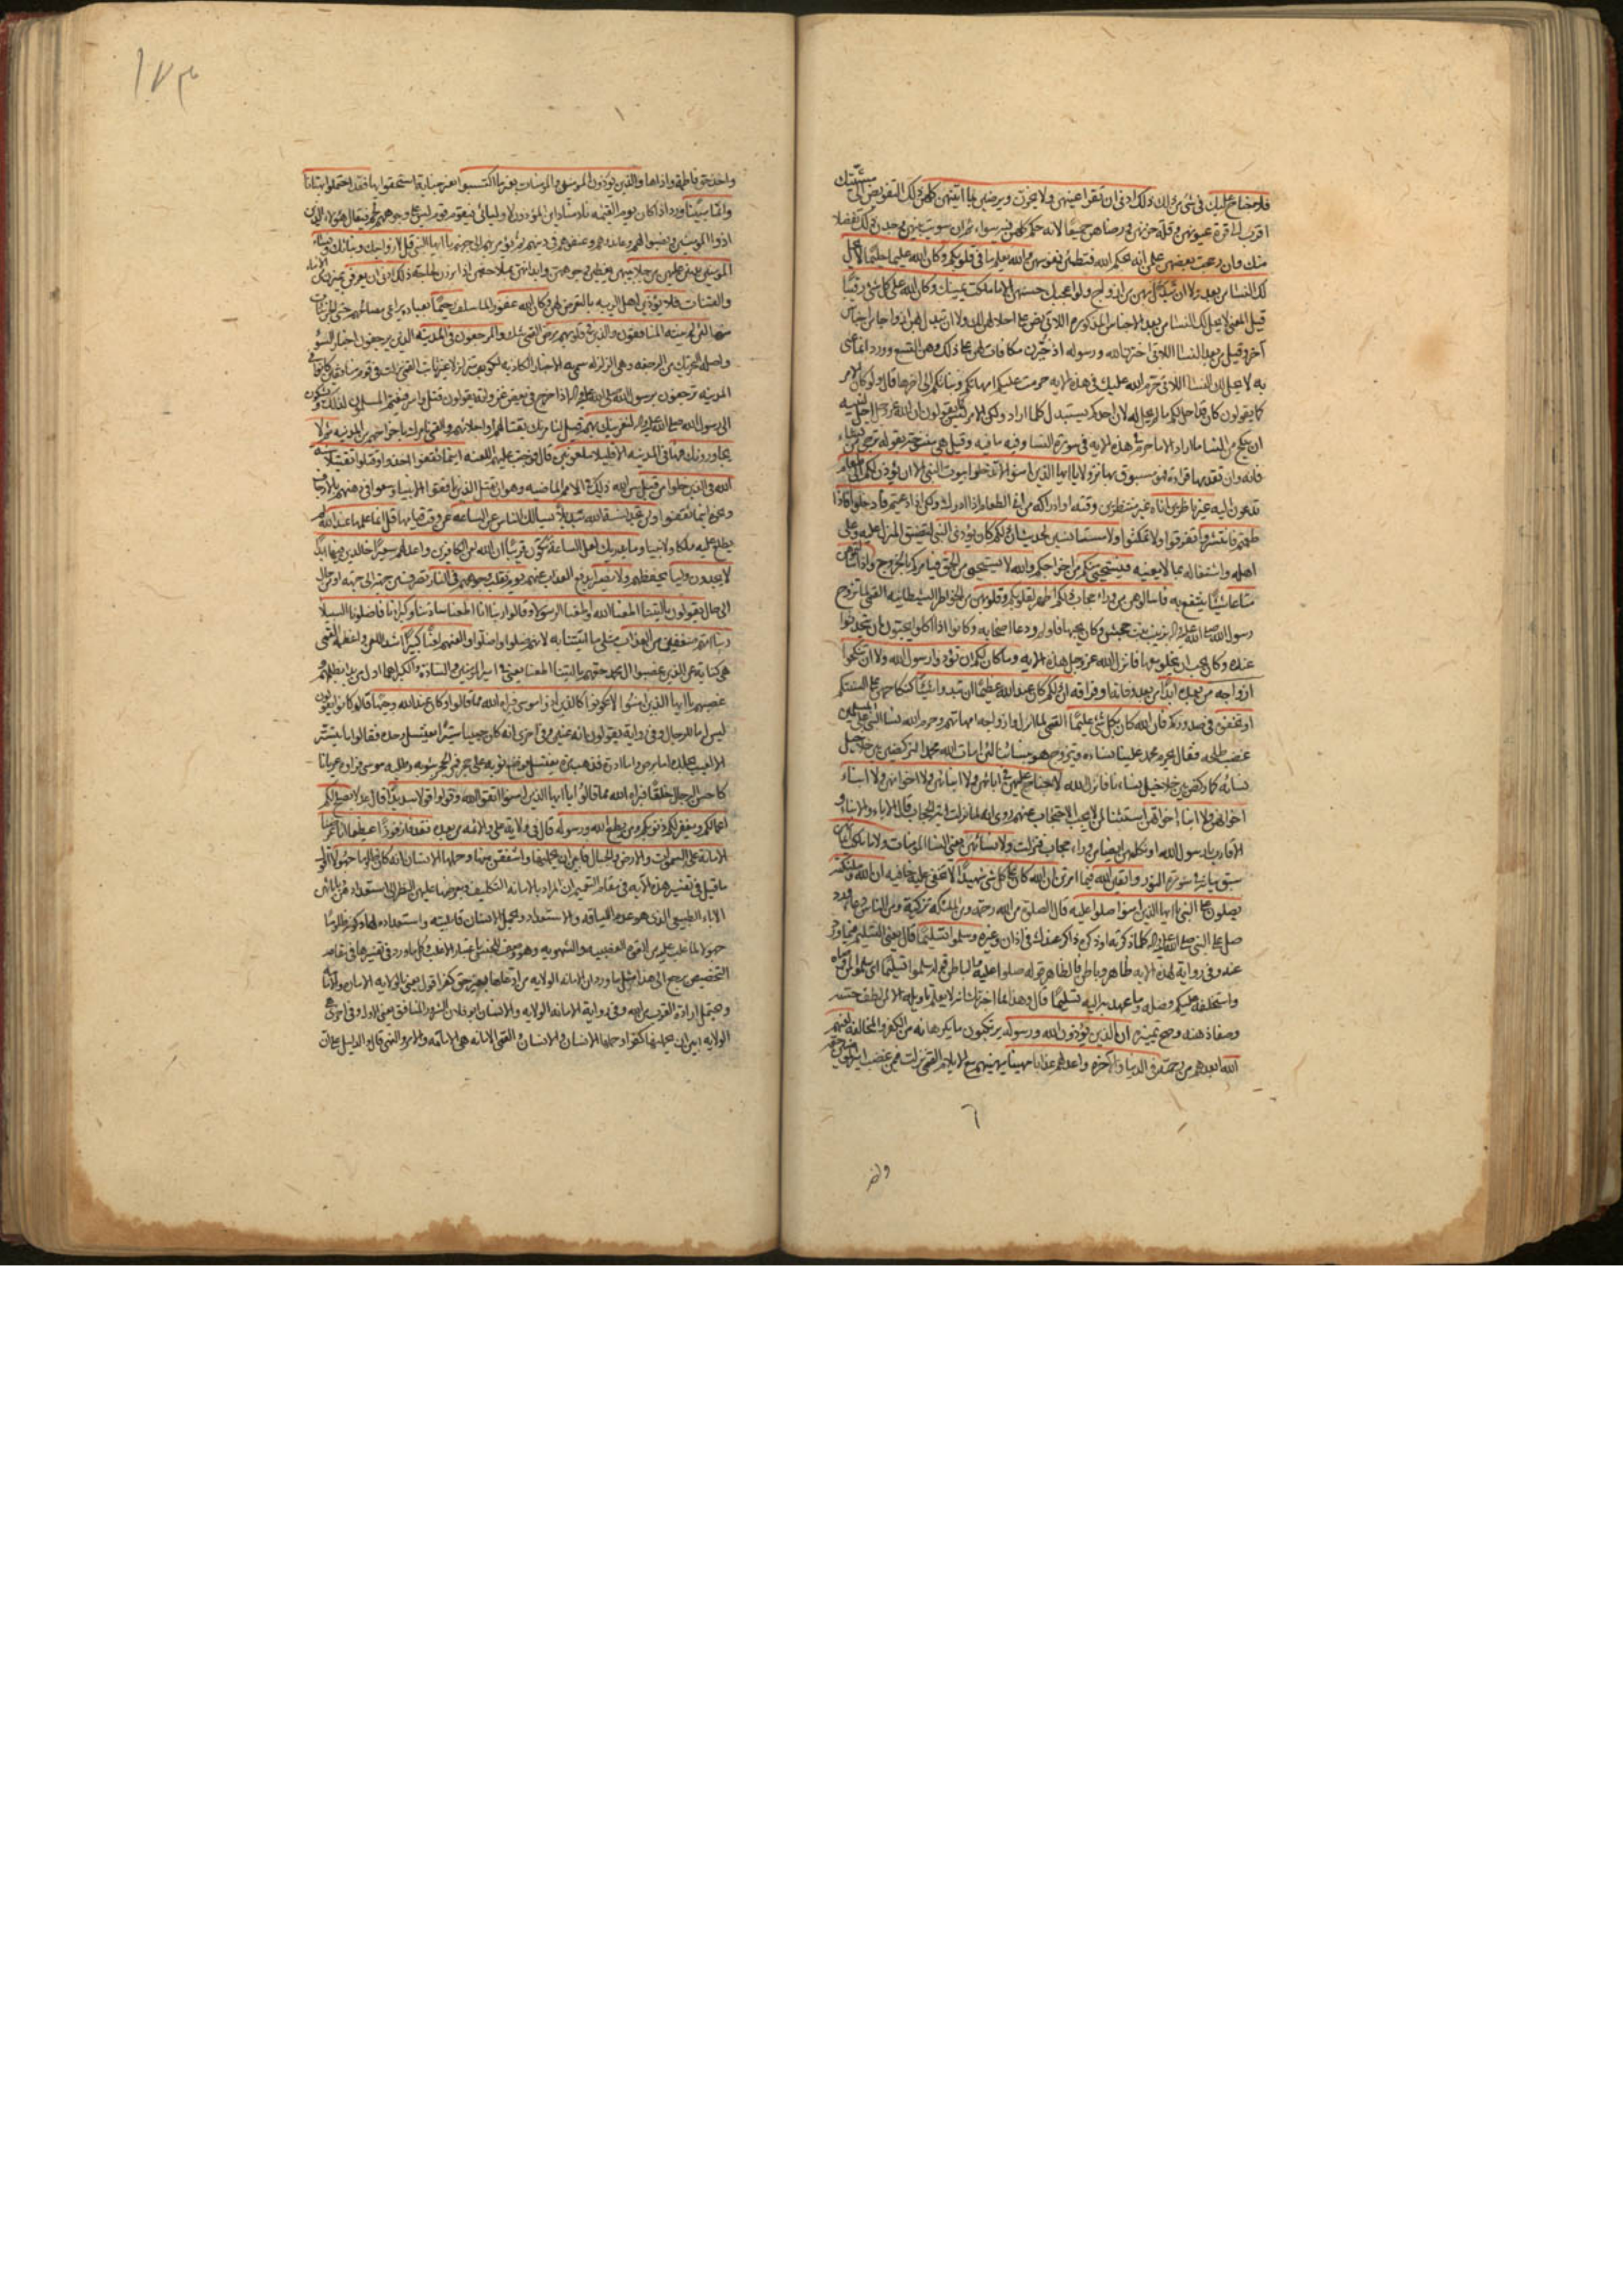 فلا جناح عليك في شئ من ذلك ذلك ادنى ان تقر اعينهن ولا يحزن ويرضين بما اتيتهن كلهن ذلك التفويض الى مشيتك
اقرب الى قرة عيونهن وقلة حزنهن ورضاهن جميعا لانه حكم كلهن فيه سواء ثم ان سويت بينهن وجدن ذلك تفضلا
منك وان رجحت بعضهن علمن انه بحكم الله فتطمئن نفوسهن والله يعلم ما في قلوبكم وكان الله عليما حليما لا يحل
لك النساء من بعد ولا ان تبدل بهن من ازواج ولو اعجبك حسنهن الا ما ملكت يمينك وكان الله على كل شئ رقيبا
قيل المعنى لا يحل لك النساء من بعد الاجناس المذكورة اللاتي نص على احلالهن لك ولا ان تبدل بهن ازواجا من اجناس
اخر وقيل من بعد النساء اللاتي اخترن الله ورسوله اذ خيرن مكافاة لهن على ذلك وهن التسع وورد انما عنى
به لا يحل لك النساء اللاتي حرم الله عليك في هذه الاية حرمت عليكم امهاتكم وبناتكم الى اخرها قال ولو كان الامر
كما يقولون كان قد احل لكم ما لم يحل له لان احدكم يستبدل كلما اراد ولكن الامر ليس كما يقولون ان الله عز وجل احل لنبيه
ان ينكح من النساء ما اراد الا ما حرم في هذه الاية في سورة النساء وفيه ما فيه وقيل هي منسوخة بقوله ترجي من تشاء
فانه وان تقدمها قراءة فهو مسبوق بها نزولا يا ايها الذين امنوا لا تدخلوا بيوت النبي الا ان يؤذن لكم الى طعام
تدعون اليه غير ناظرين اناه غير منتظرين وقته او ادراكه من انى الطعام اذا ادرك ولكن اذا دعيتم فادخلوا فاذا
طعمتم فانتشروا تفرقوا ولا تمكثوا ولا مستانسين لحديث ان ذلكم كان يؤذي النبي لتضييق المنزل عليه وعلى
اهله واشتغاله بما لا يعنيه فيستحيي منكم من اخراجكم والله لا يستحيي من الحق فيامركم بالخروج واذا سالتموهن
متاعا شيئا ينتفع به فاسالوهن من وراء حجاب ذلكم اطهر لقلوبكم وقلوبهن من الخواطر الشيطانية القمي لما تزوج
رسول الله صلى الله عليه واله بزينب بنت جحش وكان يحبها فاولم ودعا اصحابه وكانوا اذا اكلوا يحبون ان يتحدثوا
عنده وكان يحب ان يخلو معها فانزل الله عز وجل هذه الاية وما كان لكم ان تؤذوا رسول الله ولا ان تنكحوا
ازواجه من بعده ابدا من بعد وفاته او فراقه ان ذلكم كان عند الله عظيما ان تبدوا شيئا كنكاحهن على السنتكم
او تخفوه في صدوركم فان الله كان بكل شئ عليما القمي لما انزل الله وازواجه امهاتهم وحرم الله نساء النبي على المسلمين
غضب طلحة فقال يحرم محمد علينا نساءه ويتزوج هو بنسائنا لئن امات الله محمدا لنركضن بين خلاخيل
نسائه كما ركض بين خلاخيل نسائنا فانزل الله لا جناح عليهن في ابائهن ولا ابنائهن ولا اخوانهن ولا ابناء
اخوانهن ولا ابناء اخواتهن استثناء لمن لا يجب الاحتجاب عنهم روي انه لما نزلت اية الحجاب قال الاباء والابناء و
الاقارب يا رسول الله او نكلمهن ايضا من وراء حجاب فنزلت ولا نسائهن يعني النساء المؤمنات ولا ما ملكت ايمانهن
سبق بيانه في سورة النور واتقين الله فيما امرتن ان الله كان على كل شئ شهيدا لا تخفى عليه خافية ان الله وملئكته
يصلون على النبي يا ايها الذين امنوا صلوا عليه قال الصلوة من الله رحمة ومن الملئكة تزكية ومن الناس دعاء وورد
صل على النبي صلى الله عليه واله كلما ذكرته او ذكره ذاكر عندك في اذان وغيره وسلموا تسليما قال يعني التسليم فيما ورد
عنه وفي رواية لهذه الاية ظاهر وباطن فالظاهر قوله صلوا عليه والباطن قوله وسلموا تسليما اي سلموا لمن وصاه
واستخلفه عليكم وفضله وما عهد به اليه تسليما قال وهذا مما اخبرتك انه لا يعلم تاويله الا من لطف حسه
وصفا ذهنه وصح تمييزه ان الذين يؤذون الله ورسوله يرتكبون ما يكرهانه من الكفر والمخالفة لعنهم
الله ابعدهم من رحمته في الدنيا والاخرة واعد لهم عذابا مهينا يهينهم مع الايلام القمي نزلت فيمن غصب امير المؤمنين حقه
واخذ
واخذ حق فاطمة واذاها والذين يؤذون المؤمنين والمؤمنات بغير ما اكتسبوا بغير جناية استحقوا بها فقد احتملوا بهتانا
واثما مبينا ورد اذا كان يوم القيمة نادى مناد اين المؤذون لاوليائي فيقوم قوم ليس على وجوههم لحم فيقال هؤلاء الذين
اذوا المؤمنين ونصبوا لهم وعاندوهم وعنفوهم في دينهم ثم يؤمر بهم الى جهنم يا ايها النبي قل لازواجك وبناتك ونساء
المؤمنين يدنين عليهن من جلابيبهن يغطين وجوههن وابدانهن بملاحفهن اذا برزن لحاجة ذلك ادنى ان يعرفن يميزن من الاماء
والقينات فلا يؤذين اهل الريبة بالتعرض لهن وكان الله غفورا لما سلف رحيما بعباده يراعي مصالحهم حتى الجزئيات
منها لئن لم ينته المنافقون والذين في قلوبهم مرض القمي شك والمرجفون في المدينة الذين يرجفون اخبار السوء
واصله التحريك من الرجفة وهي الزلزلة سمي به الاخبار الكاذبة لكونه متزلزلا غير ثابت القمي نزلت في قوم منافقين كانوا في
المدينة يرجفون برسول الله صلى الله عليه واله اذا خرج في بعض غزواته يقولون قتل واسر فيغتم المسلمون لذلك ويشكون
الى رسول الله صلى الله عليه واله لنغرينك بهم قيل لنامرنك بقتالهم او اجلائهم والقمي نامرك باخراجهم من المدينة ثم لا
يجاورونك فيها في المدينة الا قليلا ملعونين قال فوجبت عليهم اللعنة اينما ثقفوا اخذوا وقتلوا تقتيلا سنة
الله في الذين خلوا من قبل سن الله ذلك في الامم الماضية وهو ان يقتل الذين نافقوا الانبياء وسعوا في وهنهم بالارجاف
ونحوه اينما ثقفوا ولن تجد لسنة الله تبديلا يسالك الناس عن الساعة عن وقت قيامها قل انما علمها عند الله لم
يطلع عليه ملكا ولا نبيا وما يدريك لعل الساعة تكون قريبا ان الله لعن الكافرين واعد لهم سعيرا خالدين فيها ابدا
لا يجدون وليا يحفظهم ولا نصيرا يدفع العذاب عنهم يوم تقلب وجوههم في النار تصرف من جهة الى جهة او من حال
الى حال يقولون يا ليتنا اطعنا الله واطعنا الرسولا وقالوا ربنا انا اطعنا سادتنا وكبراءنا فاضلونا السبيلا
ربنا اتهم ضعفين من العذاب مثلي ما اتيتنا به لانهم ضلوا واضلوا والعنهم لعنا كبيرا اشد اللعن واعظمه القمي
هي كناية عن الذين غصبوا ال محمد حقهم يا ليتنا اطعنا يعني في امير المؤمنين والسادة والكبراء هما اول من بدا بظلمهم و
غصبهم يا ايها الذين امنوا لا تكونوا كالذين اذوا موسى فبراه الله مما قالوا وكان عند الله وجيها قال كانوا يقولون
ليس له ما للرجال وفي رواية يقولون انه عنين وفي اخرى انه كان حييا ستيرا يغتسل وحده فقالوا ما يتستر
الا لعيب بجلده اما برص واما ادرة فذهب مرة يغتسل فوضع ثوبه على حجر فمر الحجر بثوبه وطلبه موسى فراوه عريانا
كاحسن الرجال خلقا فبراه الله مما قالوا يا ايها الذين امنوا اتقوا الله وقولوا قولا سديدا قال عدلا يصلح لكم
اعمالكم ويغفر لكم ذنوبكم ومن يطع الله ورسوله قال في ولاية علي والائمة من بعده فقد فاز فوزا عظيما انا عرضنا
الامانة على السموات والارض والجبال فابين ان يحملنها واشفقن منها وحملها الانسان انه كان ظلوما جهولا اقول
ما قيل في تفسير هذه الاية في مقام التعميم ان المراد بالامانة التكليف وبعرضها عليهن النظر الى استعدادهن وبابائهن
الاباء الطبيعي الذي هو عدم اللياقة والاستعداد وبحمل الانسان قابليته واستعداده لها وكونه ظلوما
جهولا لما غلب عليه من القوة الغضبية والشهوية وهو وصف للجنس باعتبار الاغلب وكل ما ورد في تفسيرها في مقام
التخصيص يرجع الى هذا مثل ما ورد ان الامانة الولاية من ادعاها بغير حق كفر اقول يعني بالولاية الامارة والامامة
ويحتمل ارادة القرب من الله وفي رواية الامانة الولاية والانسان ابو فلان الشرور المنافق يعني الاول وفي اخرى هي
الولاية ابين ان يحملنها كفرا وحملها الانسان والانسان القمي الامانة هي الامامة والامر والنهي قال والدليل على ان